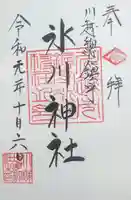 奉拝
川越総鎮守
氷川神社
令和元年十月六日